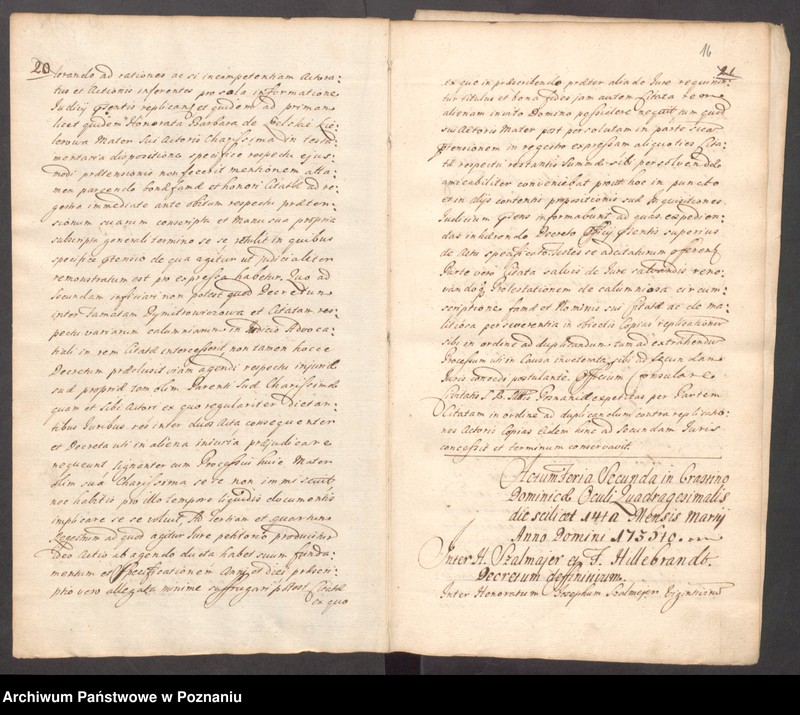 20
lerando ad rationes ac si incompetentiam Actora:
tus et Actionis inferentes pro sola informatione
Judicij replicans et quidem ad primam
licet quidem Honorata Barbara de
Mater Sui Actoris Charissima in testa:
mentaria dispositione specifice respectu ejus
modi praetensionis non fecerit mentionem atta:
men parcendo bonae famae et honori Citatae ad re:
gestra immediate ante obitum respectu praeten:
sionum suarum conscripta et Manu sua propria
subscripta generali termino se se retulit in quibus
specifice de qua agitur ut judicialiter
remonstratum est pro expressa habetur. Quo ad
Secundam inficiari non potest quod Decretum
inter famatam Dymitrowiczowa et Citatam res:
pectu variarum calumniarum in Judicio Advoca:
tiali in rem Citatae intercesserit non tamen hocce
Decretum praeclusit viam agendi respectu injuriae
suae propriae tam olim Parenti Suae Charissimae
quam et Sibi Actori ex quo regulariter dictan:
tibus Juribus res inter duos Acta consequenter
et Decreta uti in aliena injuria praejudicare
nequeunt signanter cum Processui huic Mater
olim sua Charissima se se non immiscuit
nec habitis pro illo tempore liquidis documentis
implicare se se voluit. Ad tertiam et quartam
Regestrum ad quod agitur Jure petitorio producitur
ideo Actio ab agendo ducta habet suum funda:
mentum et Specificationem Anni et diei praescri:
ptio vero allegata minime suffragari potest Citatae
ex quo
16
21
ex quo in praescribendo praeter alia de Jure requirun:
tur titulus et bona fides jam autem Citata rem
alienam invito Domino possidere nequit tum quod
sui Actoris Mater post persolutam in parte suam
praetensionem in regestro expressam aliquoties Cita:
tae respectu restantis Summae sibi persolvendae
amicabiliter conveniebat prout hoc in puncto
et in alijs contentis propositionis suae Inquisitiones
Judicium informabunt ad quas expedien:
das inhaerendo Decreto Officij superius
de Actu specificato testes se ad citaturum
Parte vero Citata salvis de Jure salvandis reno:
vando Protestationem de calumniosa circum:
scriptione famae et Nominis sui Citatae ac de ma:
litiosa perseverentia in objectis Copias replicationum
sibi in ordine ad duplicandum tum ad extrahendum
Processum uti in Causa inveterata sibi ad Secundam
Juris concedi postulante. Officium Consulare
Civitatis S. R. Mttis Posnaniae expetitas per Partem
Citatam in ordine ad duplicandum contra replicatio:
nes Actoris Copias eidem hinc ad Secundam Juris
concessit et terminum conservavit.
Actum Feria Secunda in Crastino
Dominicae Oculi Quadragesimalis
die scilicet 14ta Mensis Martij
Anno Domini 1755to.
Inter H. Szalmajer et F. Hillebrandt.
Decretum deffinitivum.
Inter Honoratum Josephum Szalmejer
Archiwum Państwowe w Poznaniu